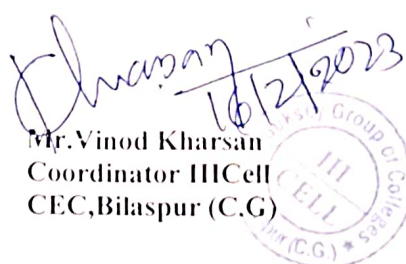 Kharsan
16/2/2023
Mr.Vinod Kharsan
Coordinator IIICell
CEC,Bilaspur (C.G)
Group Of Colleges
III
CELL
(C.G.) *